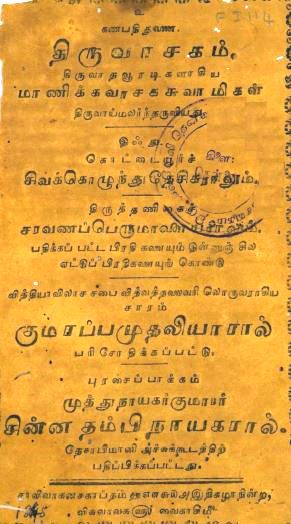 உ
கணபதி துணை.
திருவாசகம்.
திருவாதவூரடிகளாகிய
மாணிக்கவாசகசுவாமிகள்
திருவாய்மலர்ந்தருளியது
இஃது.
கொட்டையூர்ச்
சிவக்கொழுந்துதேசிகராலும்,
திருத்தணிகைச்
சரவணப்பெருமாளையராலும்,
பதிக்கப் பட்ட பிரதிகளையும் இன்னுஞ் சில
ஏட்டுப்பிரதிகளையுங் கொண்டு
வித்தியாவிலாச சபை வித்வத்தலைவரி லொருவராகிய
சாரம்
குமாரப்பமுதலியாரால்
பரிசோதிக்கப்பட்டு,
புரசைப்பாக்கம்
முத்துநாயகர்குமாரர்
சின்னதம்பிநாயகரால்.
தேசாபிமானி அச்சுக்கூடத்திற்
பதிப்பிக்கப்பட்டது.
சாலிவாகனசகாப்தம்